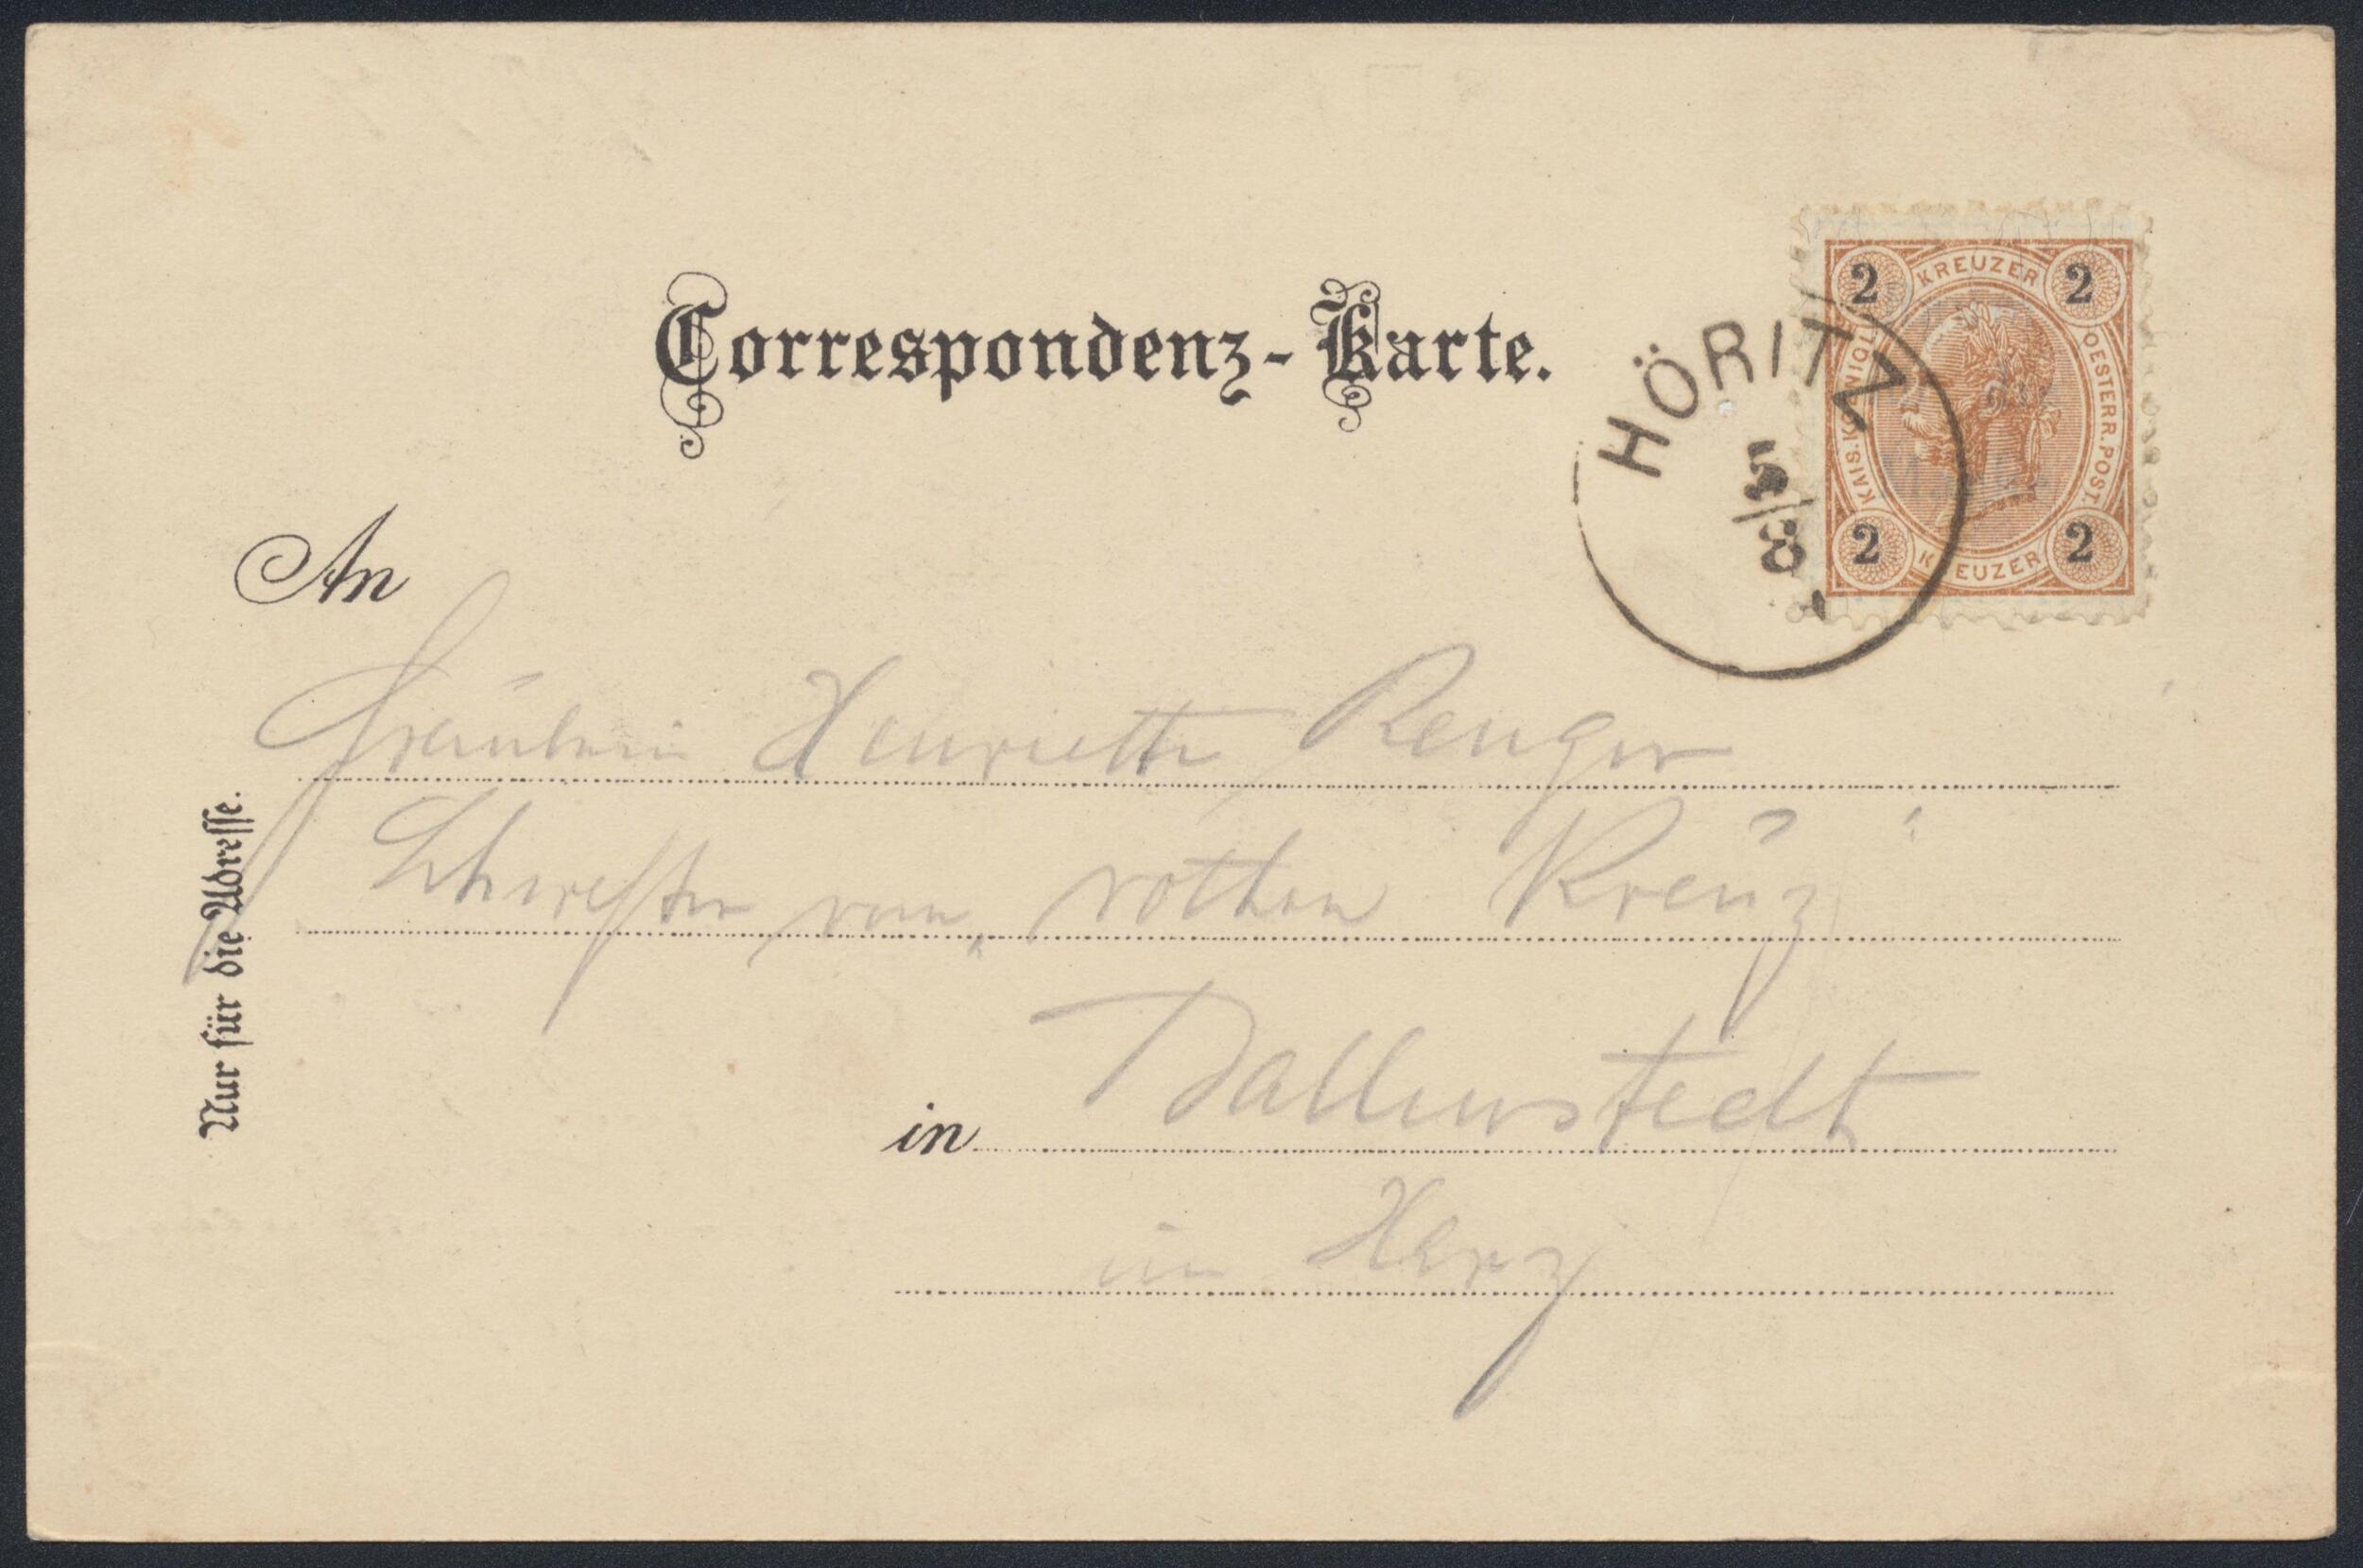 Correspondenz-Karte.
2 KREUZER 2
KAIS. KOENIGL. OESTERR. POST.
2 KREUZER 2
HÖRITZ
5/8
An
Fräulein Henriette Renger
Schwester vom „rothen Kreuz"
in Ballenstedt
im Harz
Nur für die Adresse.